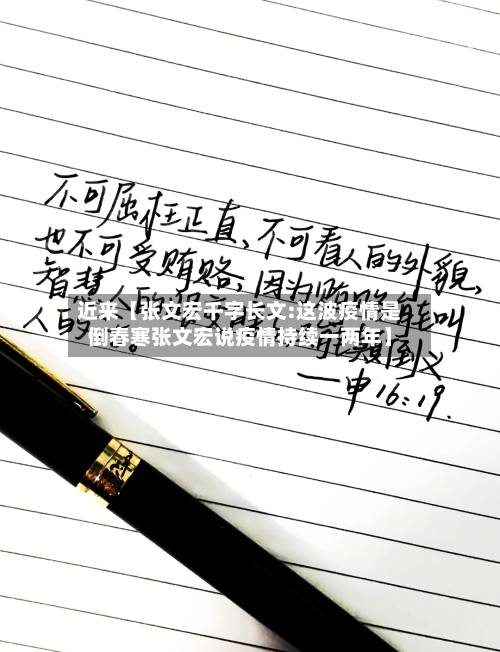 不可屈枉正直、不可看人的外貌,
也不可受贿赂,因为贿赂能叫
智慧人的
人的
近来【张文宏千字长文:这波疫情是
倒春寒张文宏说疫情持续一两年】
颠倒义
—申16:19.